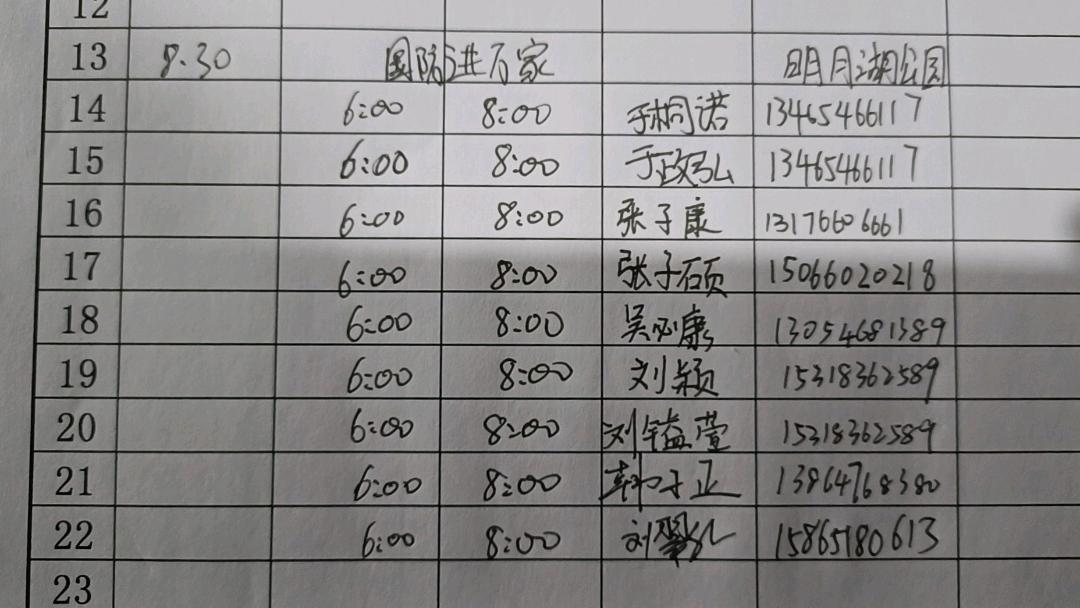 12
13 8.30 国防进万家 明月湖公园
14 6:00 8:00 于桐诺 13465466117
15 6:00 8:00 于政弘 13465466117
16 6:00 8:00 张子康 13176606661
17 6:00 8:00 张子硕 15066020218
18 6:00 8:00 吴必康 13054681389
19 6:00 8:00 刘颖 15318362589
20 6:00 8:00 刘镒萱 15318362589
21 6:00 8:00 韩子正 13864768380
22 6:00 8:00 刘 15865180613
23